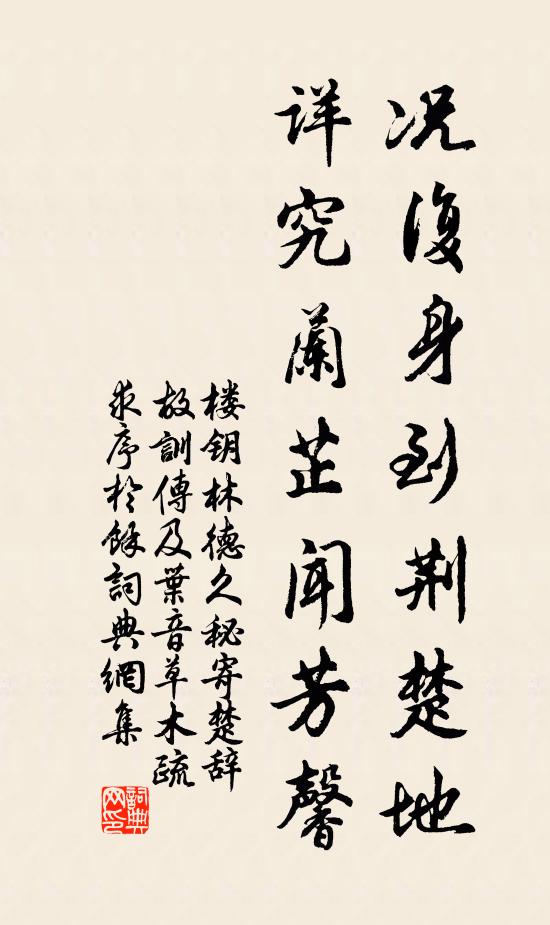 况復身到荆楚地
详究蘭芷闻芳馨
楼钥林德久秘寄楚辞
故訓傳及葉音草木疏
求序於馀詞典網集
詞典
网印